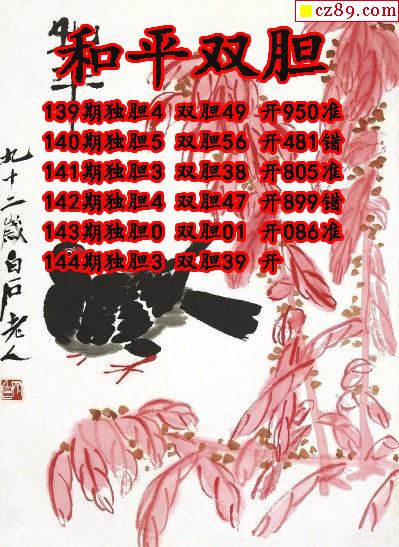 cz89.com
和平双胆
139期独胆4 双胆49 开950准
140期独胆5 双胆56 开481错
141期独胆3 双胆38 开805准
142期独胆4 双胆47 开899错
143期独胆0 双胆01 开086准
144期独胆3 双胆39 开
和平
九十二岁白石老人